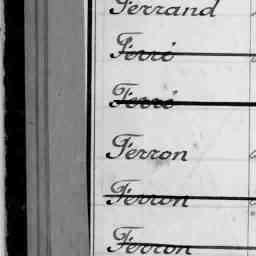 Ferrand
Ferré
Ferré
Ferron
Ferron
Ferron